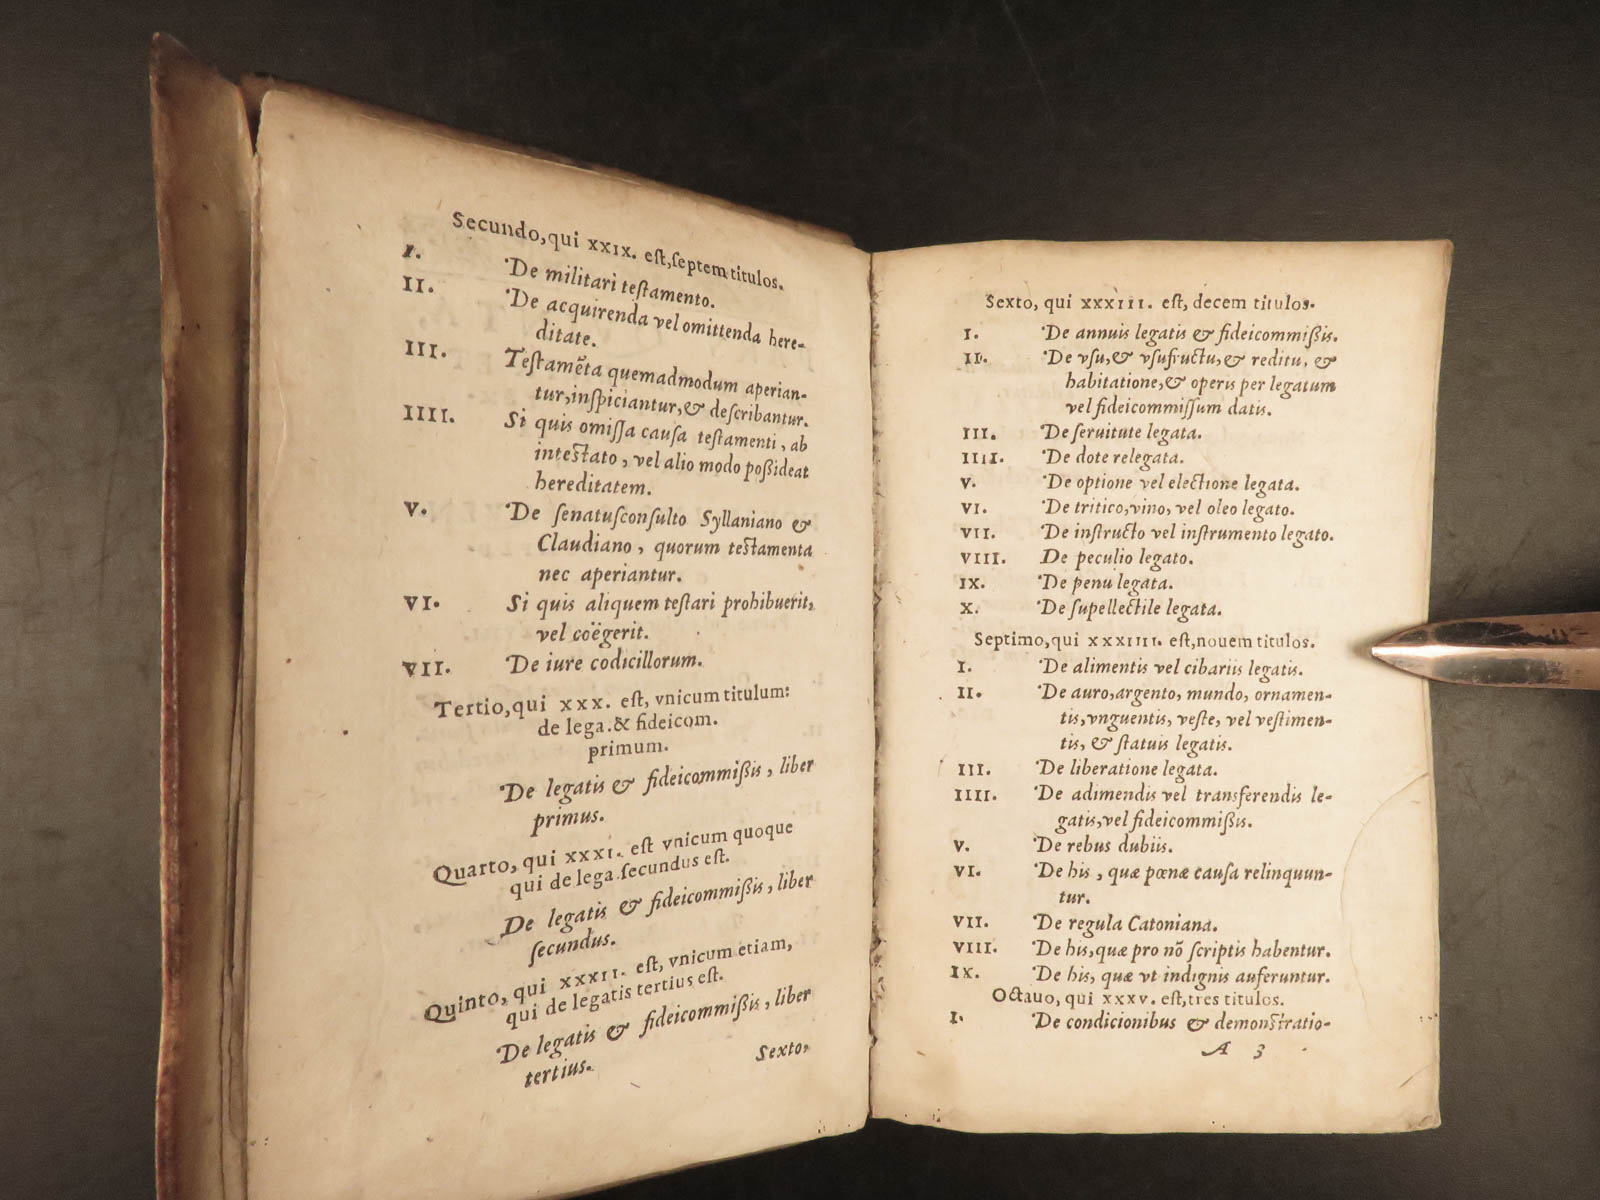 Secundo, qui XXIX. eſt, ſeptem titulos.
I. De militari teſtamento.
II. De acquirenda vel omittenda here-
ditate.
III. Teſtamēta quemadmodum aperian-
tur, inſpiciantur, & deſcribantur.
IIII. Si quis omiſſa cauſa teſtamenti, ab
inteſtato, vel alio modo poßideat
hereditatem.
V. De ſenatuſconſulto Syllaniano &
Claudiano, quorum teſtamenta
nec aperiantur.
VI. Si quis aliquem teſtari prohibuerit,
vel coëgerit.
VII. De iure codicillorum.
Tertio, qui XXX. eſt, vnicum titulum:
de lega. & fideicom.
primum.
De legatis & fideicommißis, liber
primus.
Quarto, qui XXXI. eſt vnicum quoque
qui de lega. ſecundus eſt.
De legatis & fideicommißis, liber
ſecundus.
Quinto, qui XXXII. eſt, vnicum etiam,
qui de legatis tertius eſt.
De legatis & fideicommißis, liber
tertius.
Sexto,
Sexto, qui XXXIII. eſt, decem titulos.
I. De annuis legatis & fideicommißis.
II. De vſu, & vſufructu, & reditu, &
habitatione, & operis per legatum
vel fideicommiſſum datis.
III. De ſeruitute legata.
IIII. De dote relegata.
V. De optione vel electione legata.
VI. De tritico, vino, vel oleo legato.
VII. De inſtructo vel inſtrumento legato.
VIII. De peculio legato.
IX. De penu legata.
X. De ſupellectile legata.
Septimo, qui XXXIIII. eſt, nouem titulos.
I. De alimentis vel cibariis legatis.
II. De auro, argento, mundo, ornamen-
tis, vnguentis, veſte, vel veſtimen-
tis, & ſtatuis legatis.
III. De liberatione legata.
IIII. De adimendis vel transferendis le-
gatis, vel fideicommißis.
V. De rebus dubiis.
VI. De his, quæ pœnæ cauſa relinquun-
tur.
VII. De regula Catoniana.
VIII. De his, quæ pro nō ſcriptis habentur.
IX. De his, quæ vt indignis auferuntur.
Octauo, qui XXXV. eſt, tres titulos.
I. De condicionibus & demonſtratio-
A 3